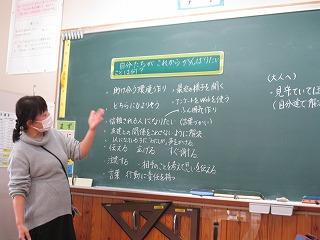 自分たちが これから がんばりたい
ことは何？
・助け合う環境作り
・どちらにもよりそう
・信頼される人になりたい (言葉づかい)
・友達との関係をこわさないように解決
伝える 広げる すぐ謝る
注意する ・相手のことを考えて思いを伝える
・言葉 行動に責任を持つ
・普段の様子を聞く
・アンケートをWebを使う
(大人へ)
・見守ってい
(自分達で解